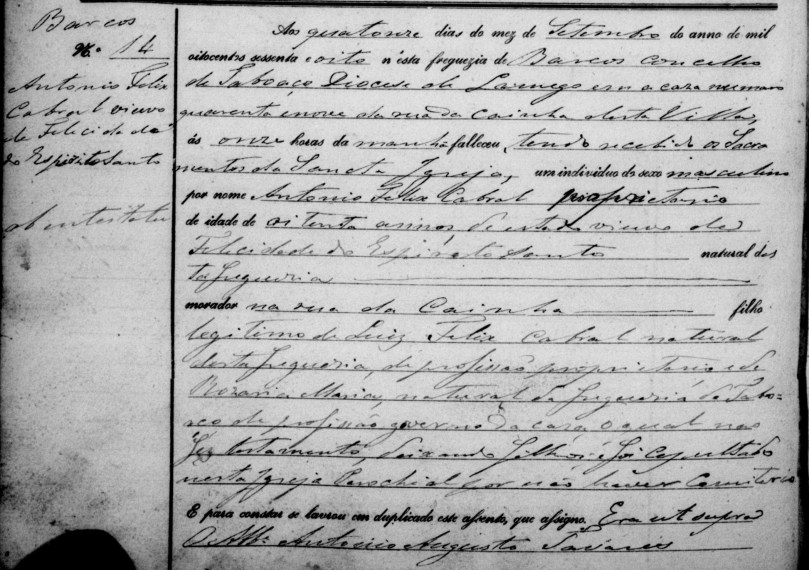 Barcos
N.º 14
Antonio Felix
Cabral viuvo
de Felicidade
do Espirito Santo
Aos quatorze dias do mez de Setembro do anno de mil
oitocentos sessenta e oito n'ésta freguezia de Barcos concelho
de Taboaço Diocese de Lamego em a caza numero
quarenta e nove da rua da Cainha desta Villa,
ás onze horas da manhã falleceu, tendo recebido os Sacra
mentos da Sancta Igreja, um individuo do sexo masculino
por nome Antonio Felix Cabral proprietario
de idade de oitenta annos, de estado viuvo de
Felicidade do Espirito Santo natural des
ta freguezia
morador na rua da Cainha filho
legitimo de Luiz Felix Cabral natural
desta freguezia, de profissão proprietario e de
Rozaria Maria, natural da freguezia de Tabo=
ço de profissão governo da caza o qual nao
fez testamento, deixando filhos e foi sepultado
nesta Igreja Parochial por não haver Cemiterio
E para constar se lavrou em duplicado este assento, que assigno. Era ut supra
O Abb.e Antonio Augusto Tavares